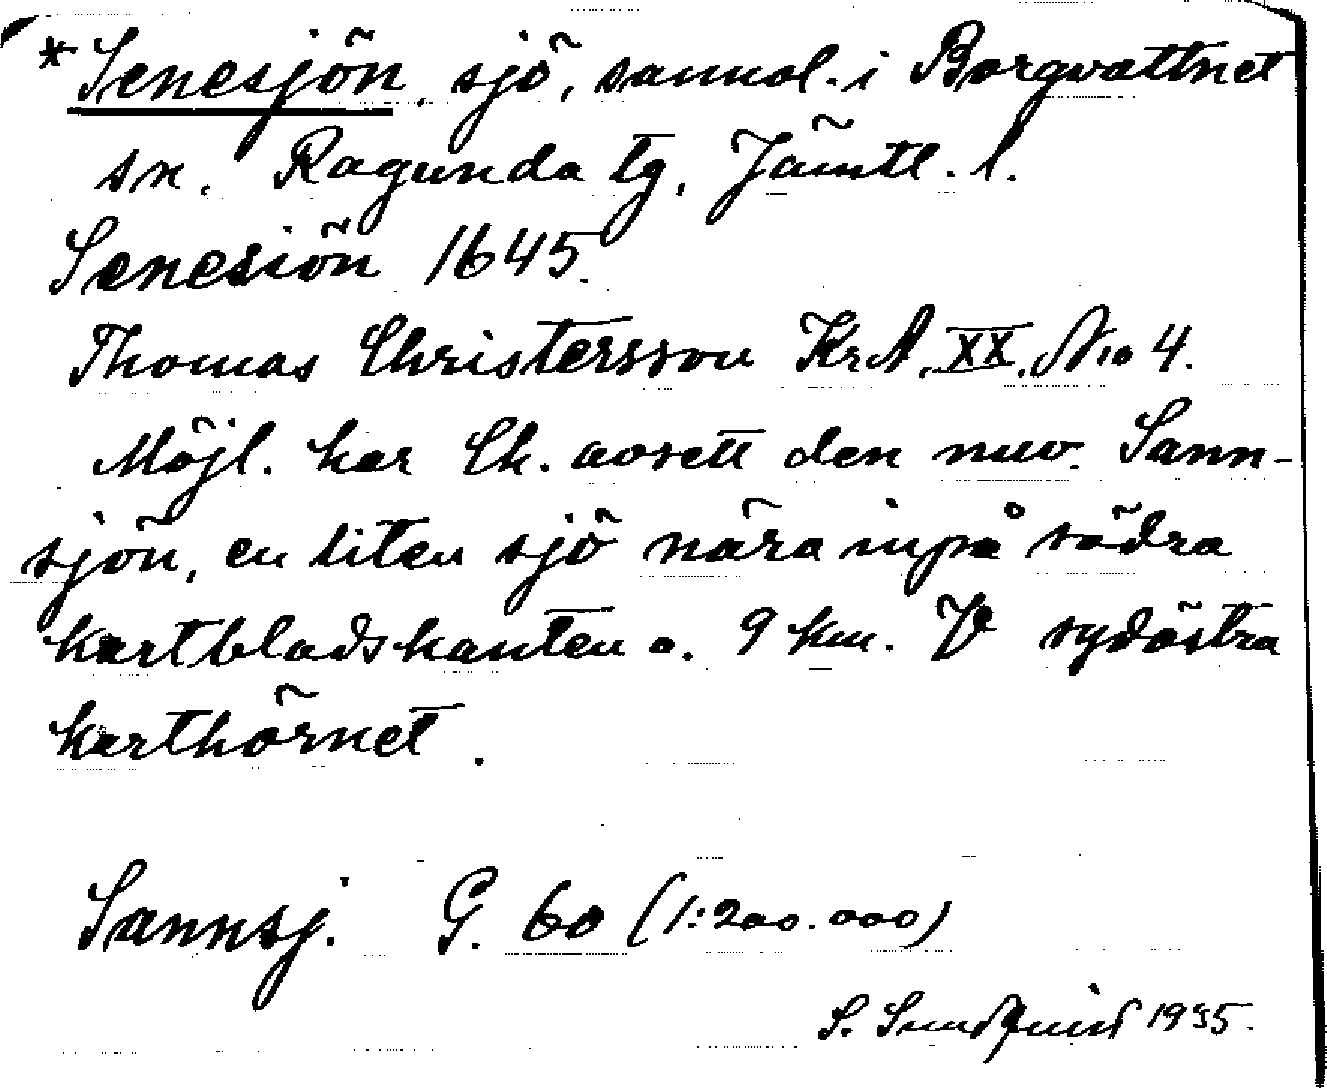 *Senesjön, sjö, sannol. i Borgvattnet
sn. Ragunda tg, Jämtl. l.
Senesiön 1645.
Thomas Christersson KrA. XX. No 4.
Möjl. har Ch. avsett den nuv. Sann-
sjön, en liten sjö nära inpå södra
kartbladskanten o. 9 km. V sydöstra
karthörnet.
Sannsj. G. 60 (1:200.000)
S. Sundquist 1935.